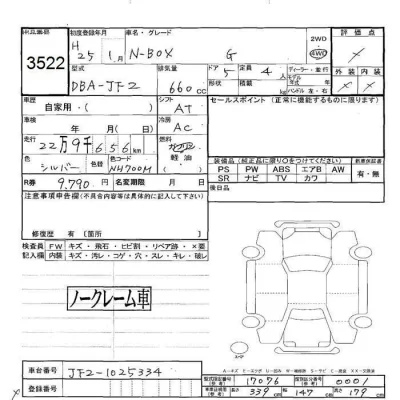 出品番号
3522
初度登録年月
H 25年 1月
車名・グレード
N-BOX G
2WD
4WD
評価点
型式
DBA-JF2
排気量
660 CC
ドア 5
定員 4
形状
積載 kg
ディーラー・並行
モデル年式
ハンドル 左・右
外装 内装
車歴
自家用・( )
シフト
AT
セールスポイント (正常に機能するものに限ります)
年 月(日)
冷房
AC
走行
22万9千656 km
燃料
ガソリン
軽油
色
シルバー
色替
色コード
NH700M
装備品 (純正品に限り○をつけてください)
PS PW ABS エアB AW
SR ナビ TV カワ
新車保証書
有・無
R券
9,790円
名変期限
年 月(日)
後日品
注意事項申告欄(不具合内容等は具体的に記入して下さい)
修復歴 有 [箇所 ]
検査員記入欄
FW キズ・飛石・ヒビ割・リペア跡・×要
内装 キズ・汚レ・コゲ・穴・スレ・キレ・破レ
ノークレーム車
スペア
車台番号
JF2-1025334
登録番号
型式指定番号 (参考)
17076
類別区分番号 (参考)
0001
車体詳細 (参考)
長さ 339 cm
幅 147 cm
高さ 179 cm